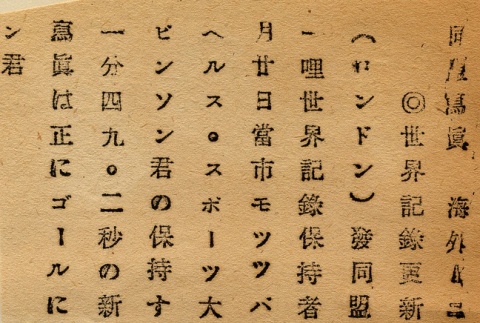 同盟寫眞 海外ニユ
◎世界記錄更新
(ロンドン)發同盟
一哩世界記錄保持者
月廿日當市モツツパ
ヘルス。スポーツ大
ビンソン君の保持す
一分四九。二秒の新
寫眞は正にゴールに
ン君